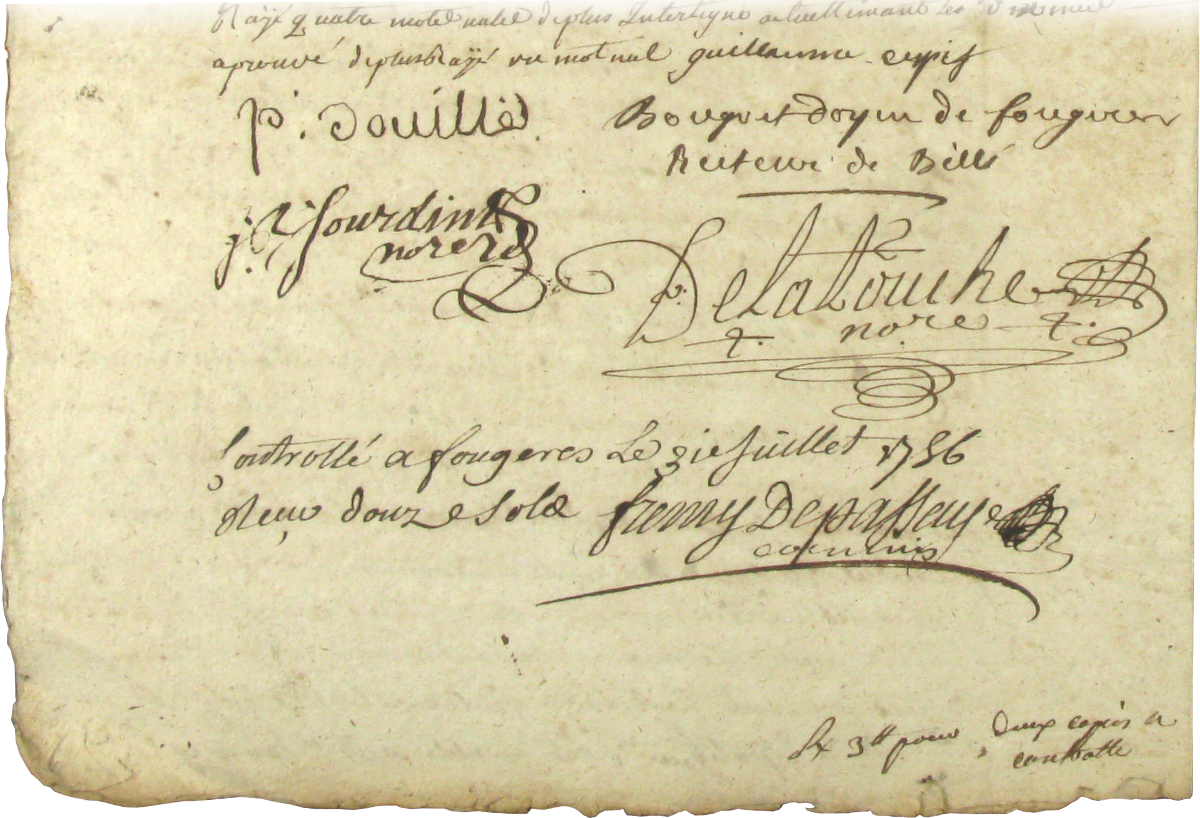 Rayé quatre mots nuls de plus Interligne actuellement les
aprouvé de plus Rayé un mot nul guillaume
p. Douillé
Bouguet doyen de fougeres
Recteur de Billé
j. Jourdin
nore rd
Delatouche
nore
Controllé a fougeres Le 9ie Juillet 1756
Recu douze Sols framy Depassay
commis
3tt pour deux copies et
controlle